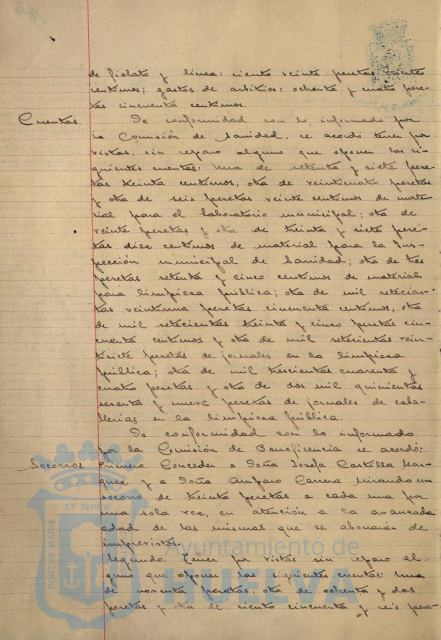 de fielato y línea: ciento veinte pesetas veinte
centimos; gastos de arbitrios: ochenta y cuatro pese-
tas cincuenta centimos.
Cuentas. De conformidad con lo informado por
la Comisión de Sanidad, se acordó tener por
vistas, sin reparo alguno que oponer las si-
guientes cuentas: Una de setenta y siete pese-
tas treinta centimos, otra de veinticuatro pesetas
y otra de seis pesetas veinte centimos de mate-
rial para el laboratorio municipal; otra de
veinte pesetas y otra de treinta y siete pese-
tas diez centimos de material para la Ins-
pección municipal de Sanidad; otra de tres
pesetas setenta y cinco centimos de material
para limpieza pública; otra de mil setecien-
tas veintiuna pesetas cincuenta centimos, otra
de mil setecientas treinta y cinco pesetas cin-
cuenta centimos y otra de mil setecientas vein-
tisiete pesetas de jornales en la limpieza
pública; otra de mil trescientas cuarenta y
cuatro pesetas y otra de dos mil quinientas
sesenta y nueve pesetas de jornales de caba-
llerias en la limpieza pública.
De conformidad con lo informado
por la Comisión de Beneficencia se acordó:
Socorros. Primero. Conceder a Doña Josefa Castilla Mar-
quez y a Doña Amparo Carrera Miranda un
socorro de treinta pesetas a cada una por
una sola vez, en atención a la avanzada
edad de las mismas que se abonarán de
imprevistos.
Segundo. Tener por vistas sin reparo al-
guno que oponer las siguientes cuentas: Una
de noventa pesetas, otra de ochenta y dos
pesetas y otra de ciento cincuenta y seis pese-
Ayuntamiento de
HUELVA